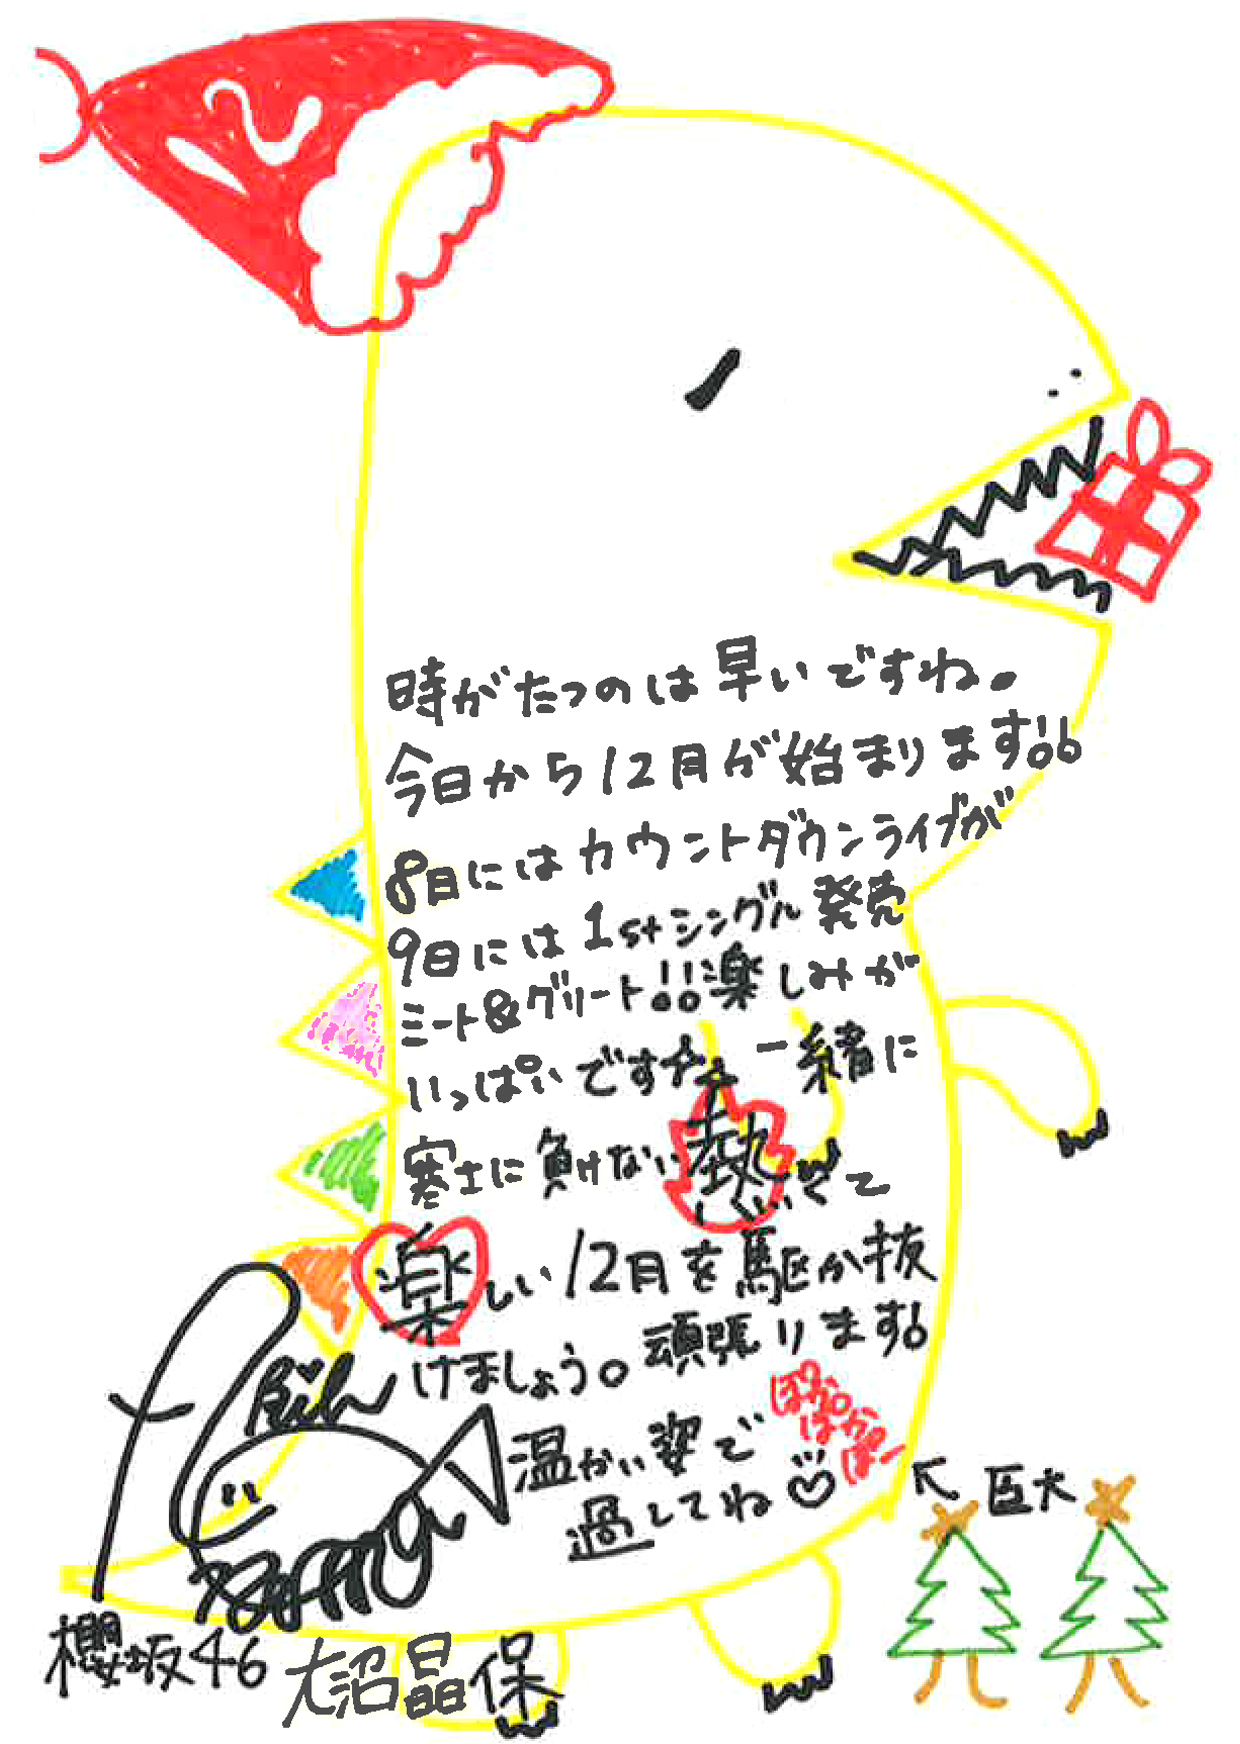 時がたつのは早いですね。
今日から12月が始まります!!
8日にはカウントダウンライブが
9日には1stシングル発売
ミート&グリート!!楽しみが
いっぱいですナァ 一緒に
寒士に負けない熱いくて
楽しい12月を駆か抜
けましょう。頑張ります!
温かい姿で
ぽかぽか
過してね
巨大
櫻坂46
大沼晶保